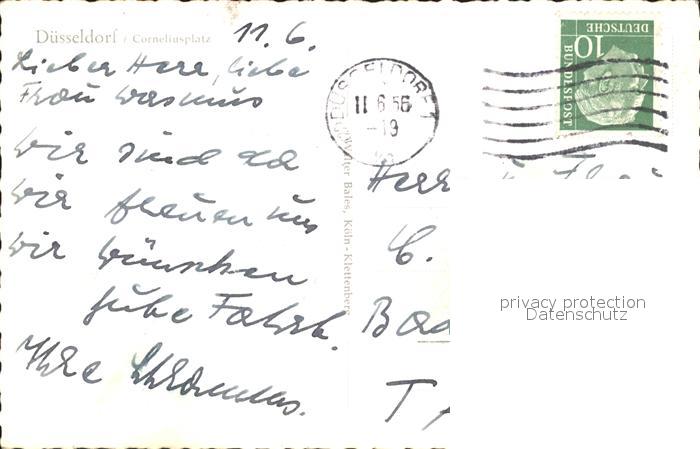 Düsseldorf / Corneliusplatz
11.6.
Lieber Herr, liebe
Frau Wasmus
Wir sind da
Wir freuen uns
Wir wünschen
gute Fahrt.
Ihre
DÜSSELDORF
11.6.56
-19
Bales, Köln-Klettenberg
10
DEUTSCHE
BUNDESPOST
Herr
C.
Bad
T
privacy protection
Datenschutz